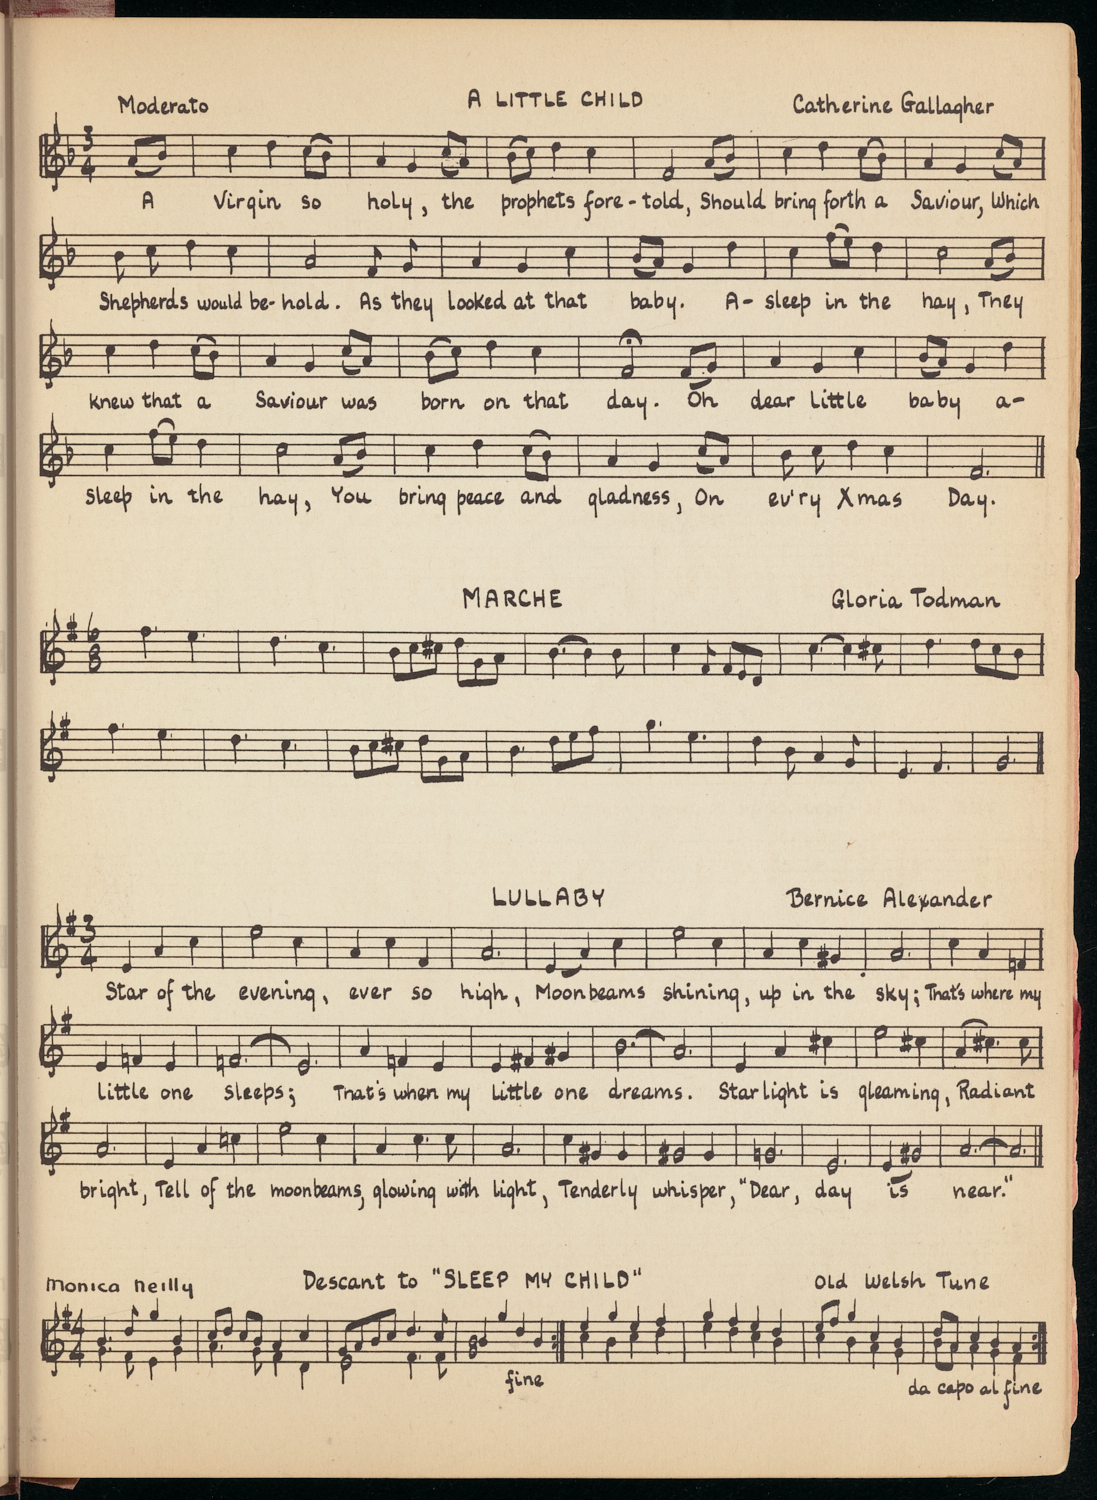 Moderato A LITTLE CHILD Catherine Gallagher
3 4
A Virgin so holy, the prophets fore-told, Should bring forth a Saviour, Which
Shepherds would be-hold. As they looked at that baby. A-sleep in the hay, They
knew that a Saviour was born on that day. Oh dear little baby a-
sleep in the hay, You bring peace and gladness, On ev'ry Xmas Day.
MARCHE Gloria Todman
6 8
LULLABY Bernice Alexander
3 4
Star of the evening, ever so high, Moonbeams shining, up in the sky; That's where my
little one sleeps; That's when my little one dreams. Starlight is gleaming, Radiant
bright, Tell of the moonbeams, glowing with light, Tenderly whisper, "Dear, day is near."
Monica Reilly Descant to "SLEEP MY CHILD" Old Welsh Tune
4 4
fine
da capo al fine